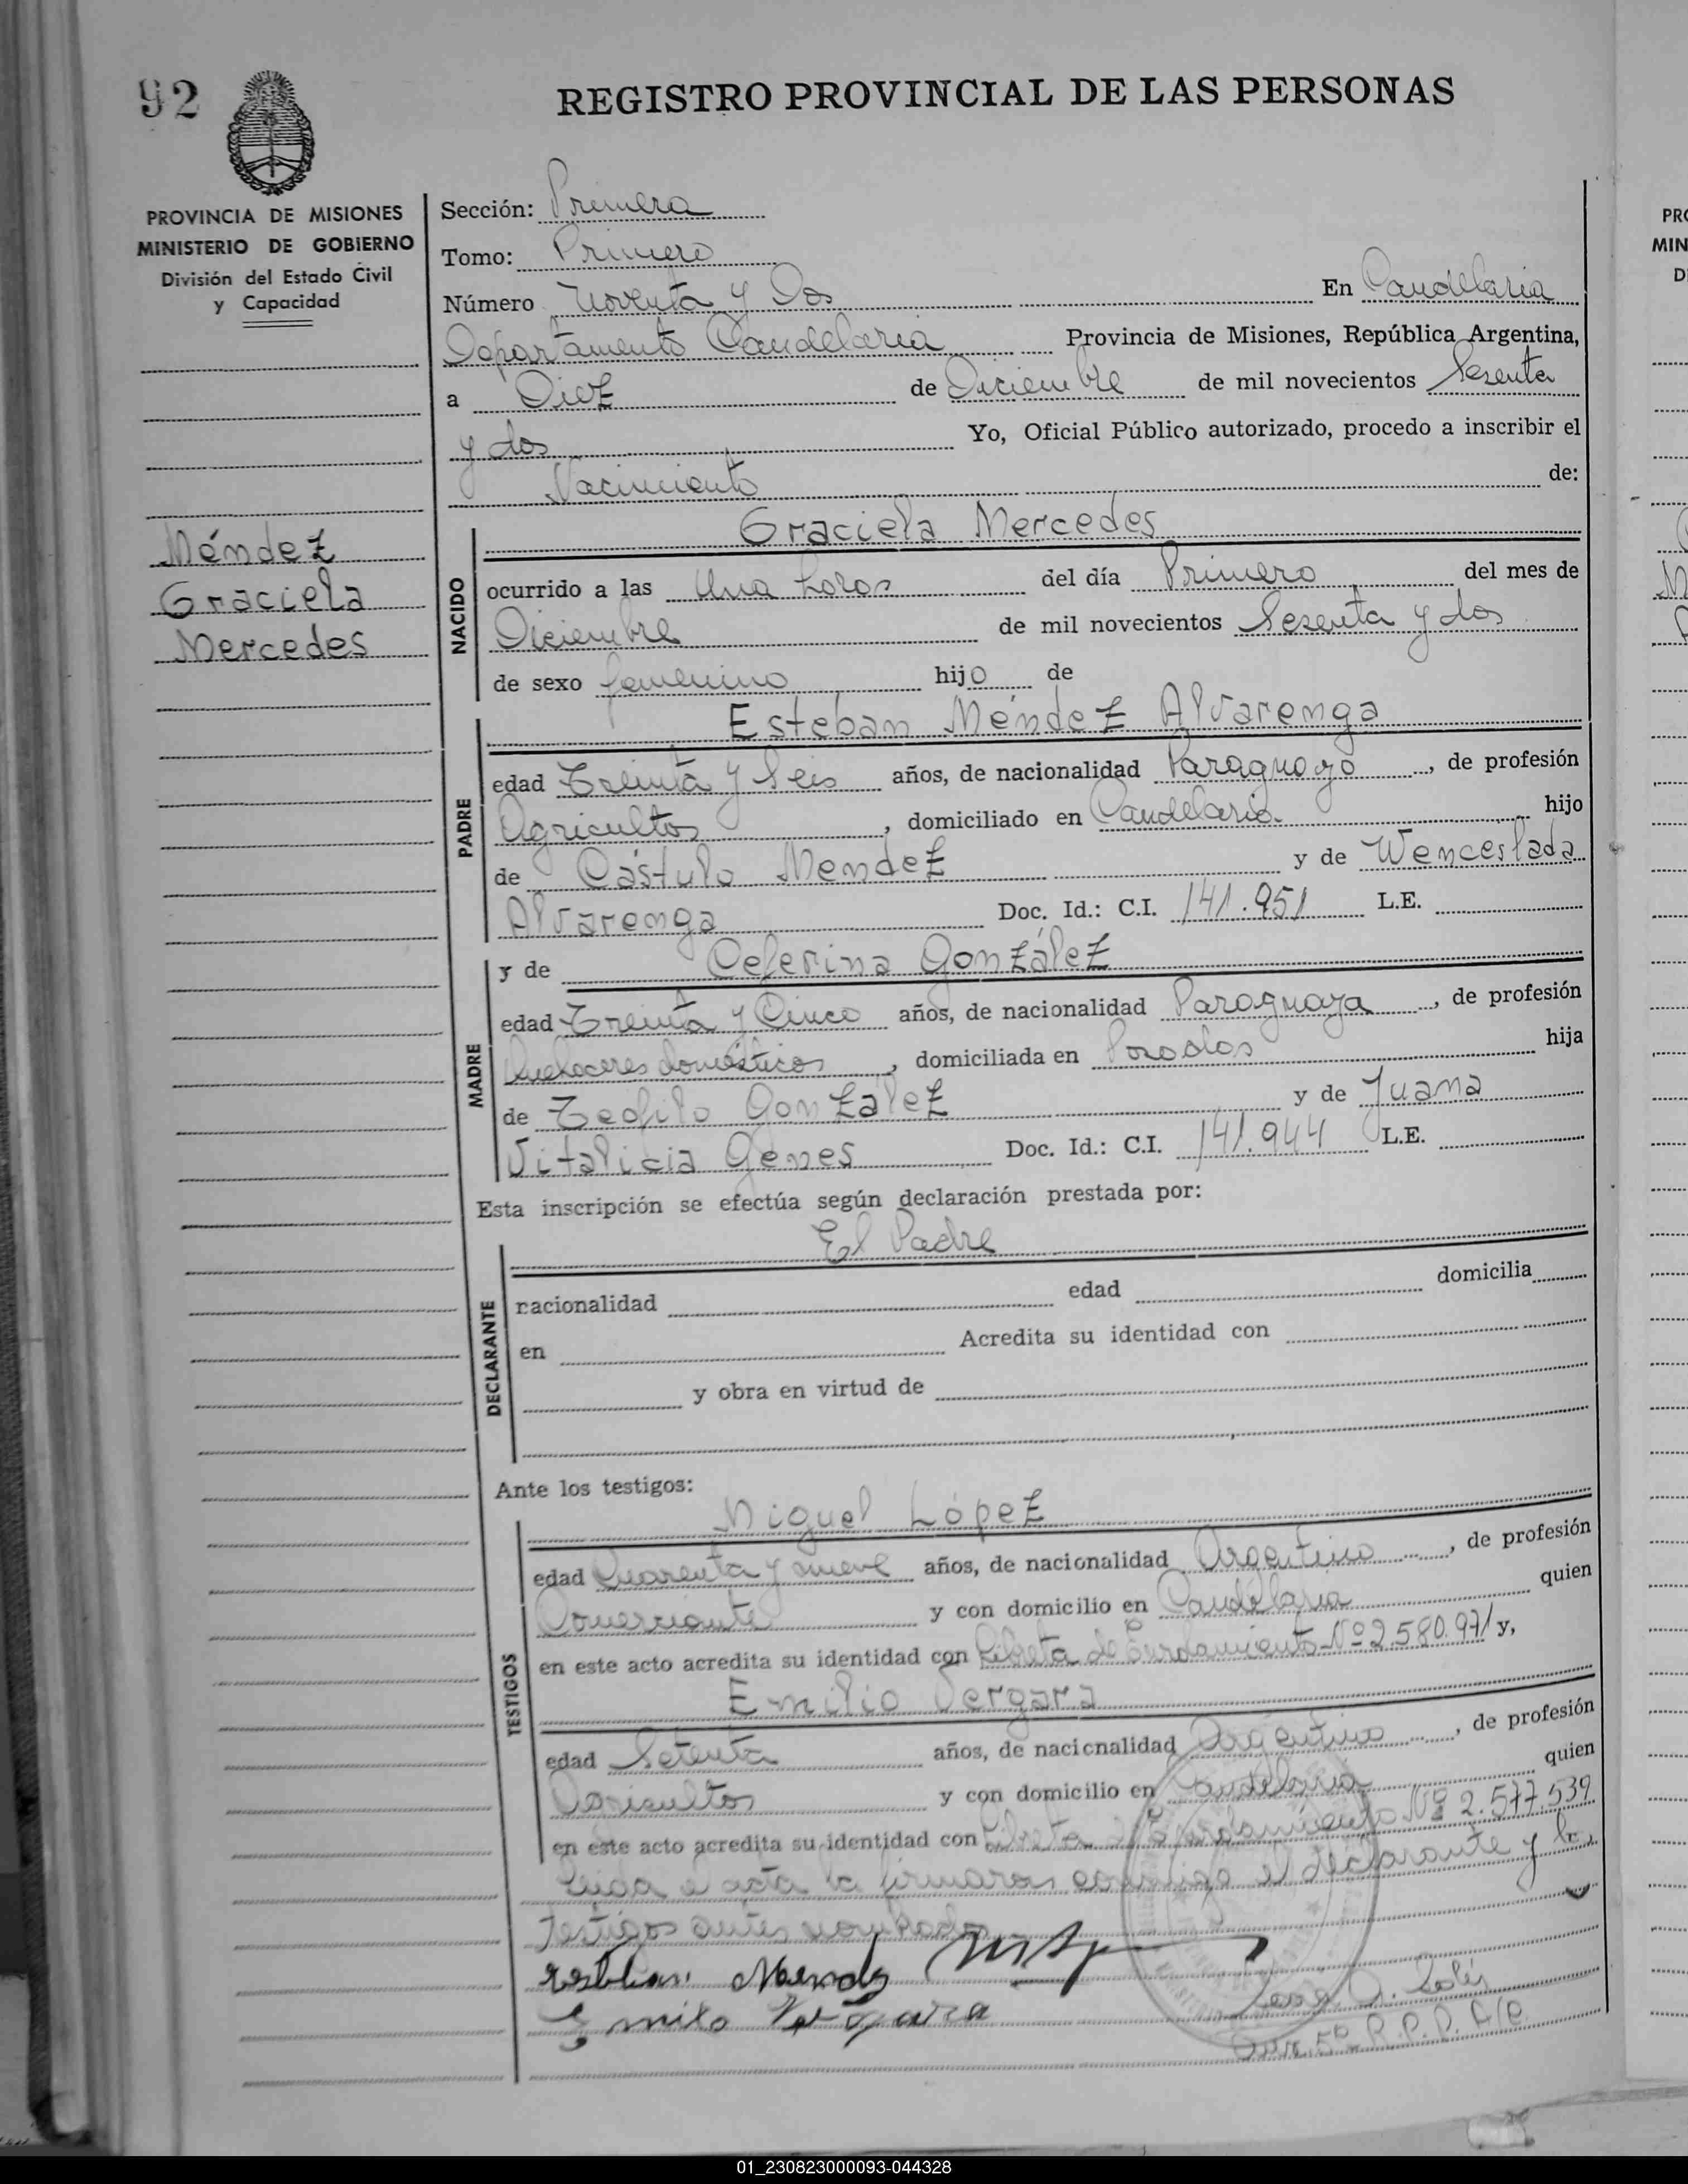 92
REGISTRO PROVINCIAL DE LAS PERSONAS
PROVINCIA DE MISIONES
MINISTERIO DE GOBIERNO
División del Estado Civil
y Capacidad
Méndez
Graciela
Mercedes
Sección: Primera
Tomo: Primero
Número Noventa y Dos En Candelaria
Departamento Candelaria Provincia de Misiones, República Argentina,
a Diez de Diciembre de mil novecientos Sesenta
y dos Yo, Oficial Público autorizado, procedo a inscribir el
Nacimiento de:
NACIDO
Graciela Mercedes
ocurrido a las Una horas del día Primero del mes de
Diciembre de mil novecientos Sesenta y dos
de sexo femenino hijo de
PADRE
Esteban Méndez Alvarenga
edad Treinta y Seis años, de nacionalidad Paraguayo, de profesión
Agricultor, domiciliado en Candelaria hijo
de Cástulo Mendez y de Wenceslada
Alvarenga Doc. Id.: C.I. 141.951 L.E.
MADRE
y de Ceferina González
edad Treinta y Cinco años, de nacionalidad Paraguaya, de profesión
Quehaceres domésticos, domiciliada en Posadas hija
de Teofilo González y de Juana
Vitalicia Génes Doc. Id.: C.I. 141.944 L.E.
Esta inscripción se efectúa según declaración prestada por:
DECLARANTE
El Padre
nacionalidad edad domicilia
en Acredita su identidad con
y obra en virtud de
Ante los testigos:
TESTIGOS
Miguel López
edad Cuarenta y nueve años, de nacionalidad Argentino, de profesión
Comerciante y con domicilio en Candelaria quien
en este acto acredita su identidad con Libreta de Enrolamiento Nº 2.580.971 y,
Emilio Vergara
edad Setenta años, de nacionalidad Argentino, de profesión
Agricultor y con domicilio en Candelaria quien
en este acto acredita su identidad con Libreta de Enrolamiento Nº 2.577.539
Leida el acta la firmaron conmigo el declarante y los
Testigos antes nombrados
esteban Mendez
Emilo Vergara
A. Solís
R.P.P. A/C.
PRO
MIN
D
01_230823000093-044328